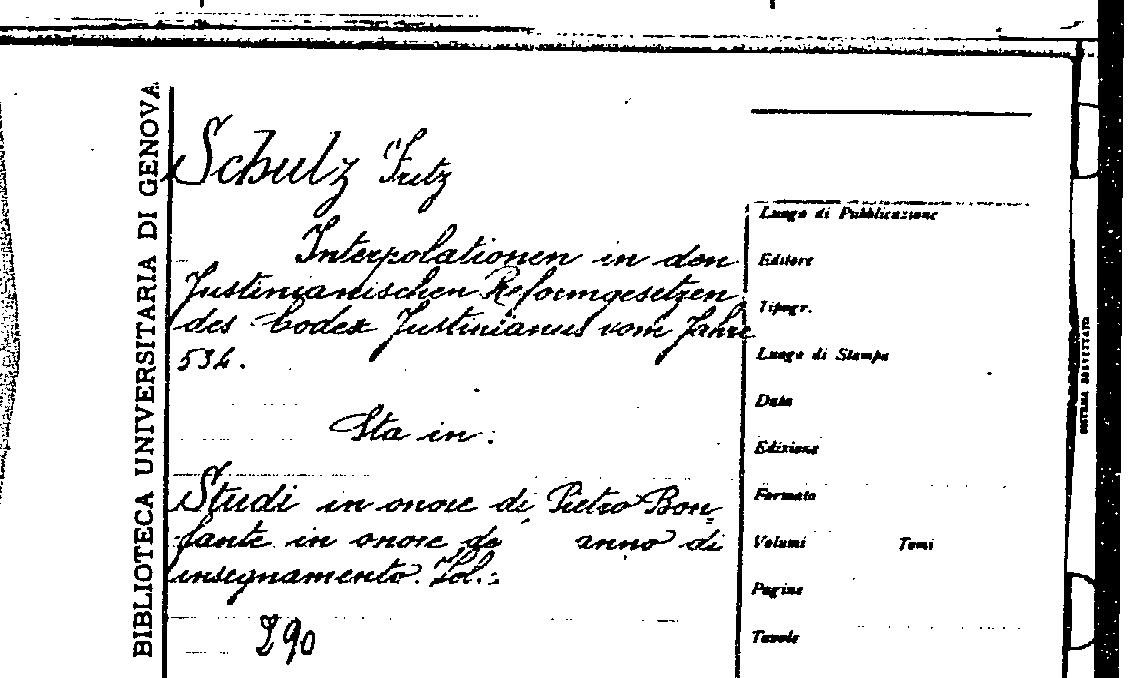 BIBLIOTECA UNIVERSITARIA DI GENOVA
Schulz Fritz
Interpolationen in den
Justinianischen Reformgesetzen
des Codex Justinianus vom Jahre
534.
Sta in:
Studi in onore di Pietro Bon=
fante in onore de anno di
insegnamento. Vol.:
290
Luogo di Pubblicazione
Editore
Tipogr.
Luogo di Stampa
Data
Edizione
Formato
Volumi Tomi
Pagine
Tavole